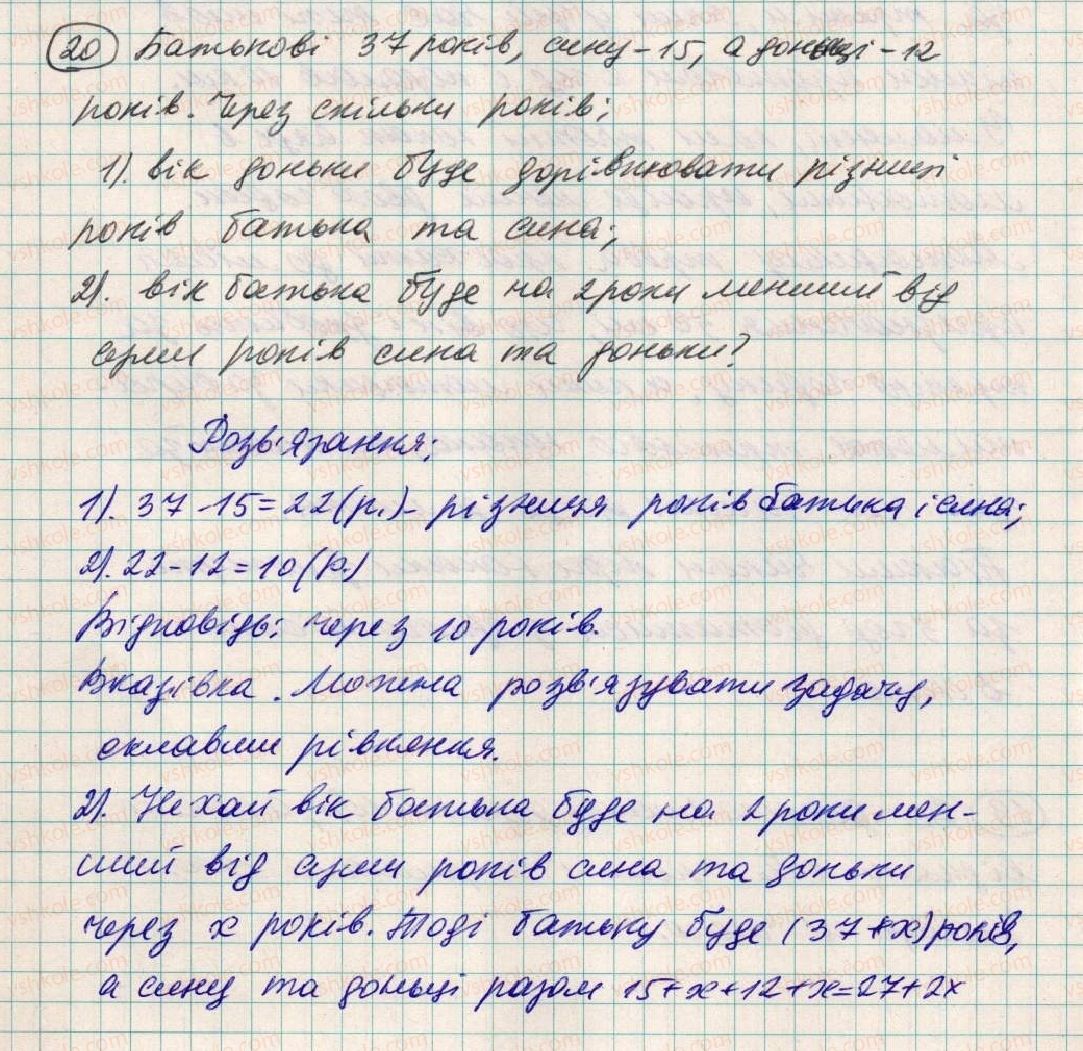 20 Батькові 37 років, сину - 15, а доньці - 12
років. Через скільки років:
1). вік доньки буде дорівнювати різниці
років батька та сина;
2). вік батька буде на 2 роки менший від
суми років сина та доньки?
Розв'язання:
1). 37-15=22(р.)- різниця років батька і сина;
2). 22-12=10(р.)
Відповідь: через 10 років.
Вказівка. Можна розв'язувати задачу,
склавши рівняння.
2). Нехай вік батька буде на 2 роки мен-
ший від суми років сина та доньки
через х років. Тоді батьку буде (37+х) років,
а сину та доньці разом 15+х+12+х=27+2х